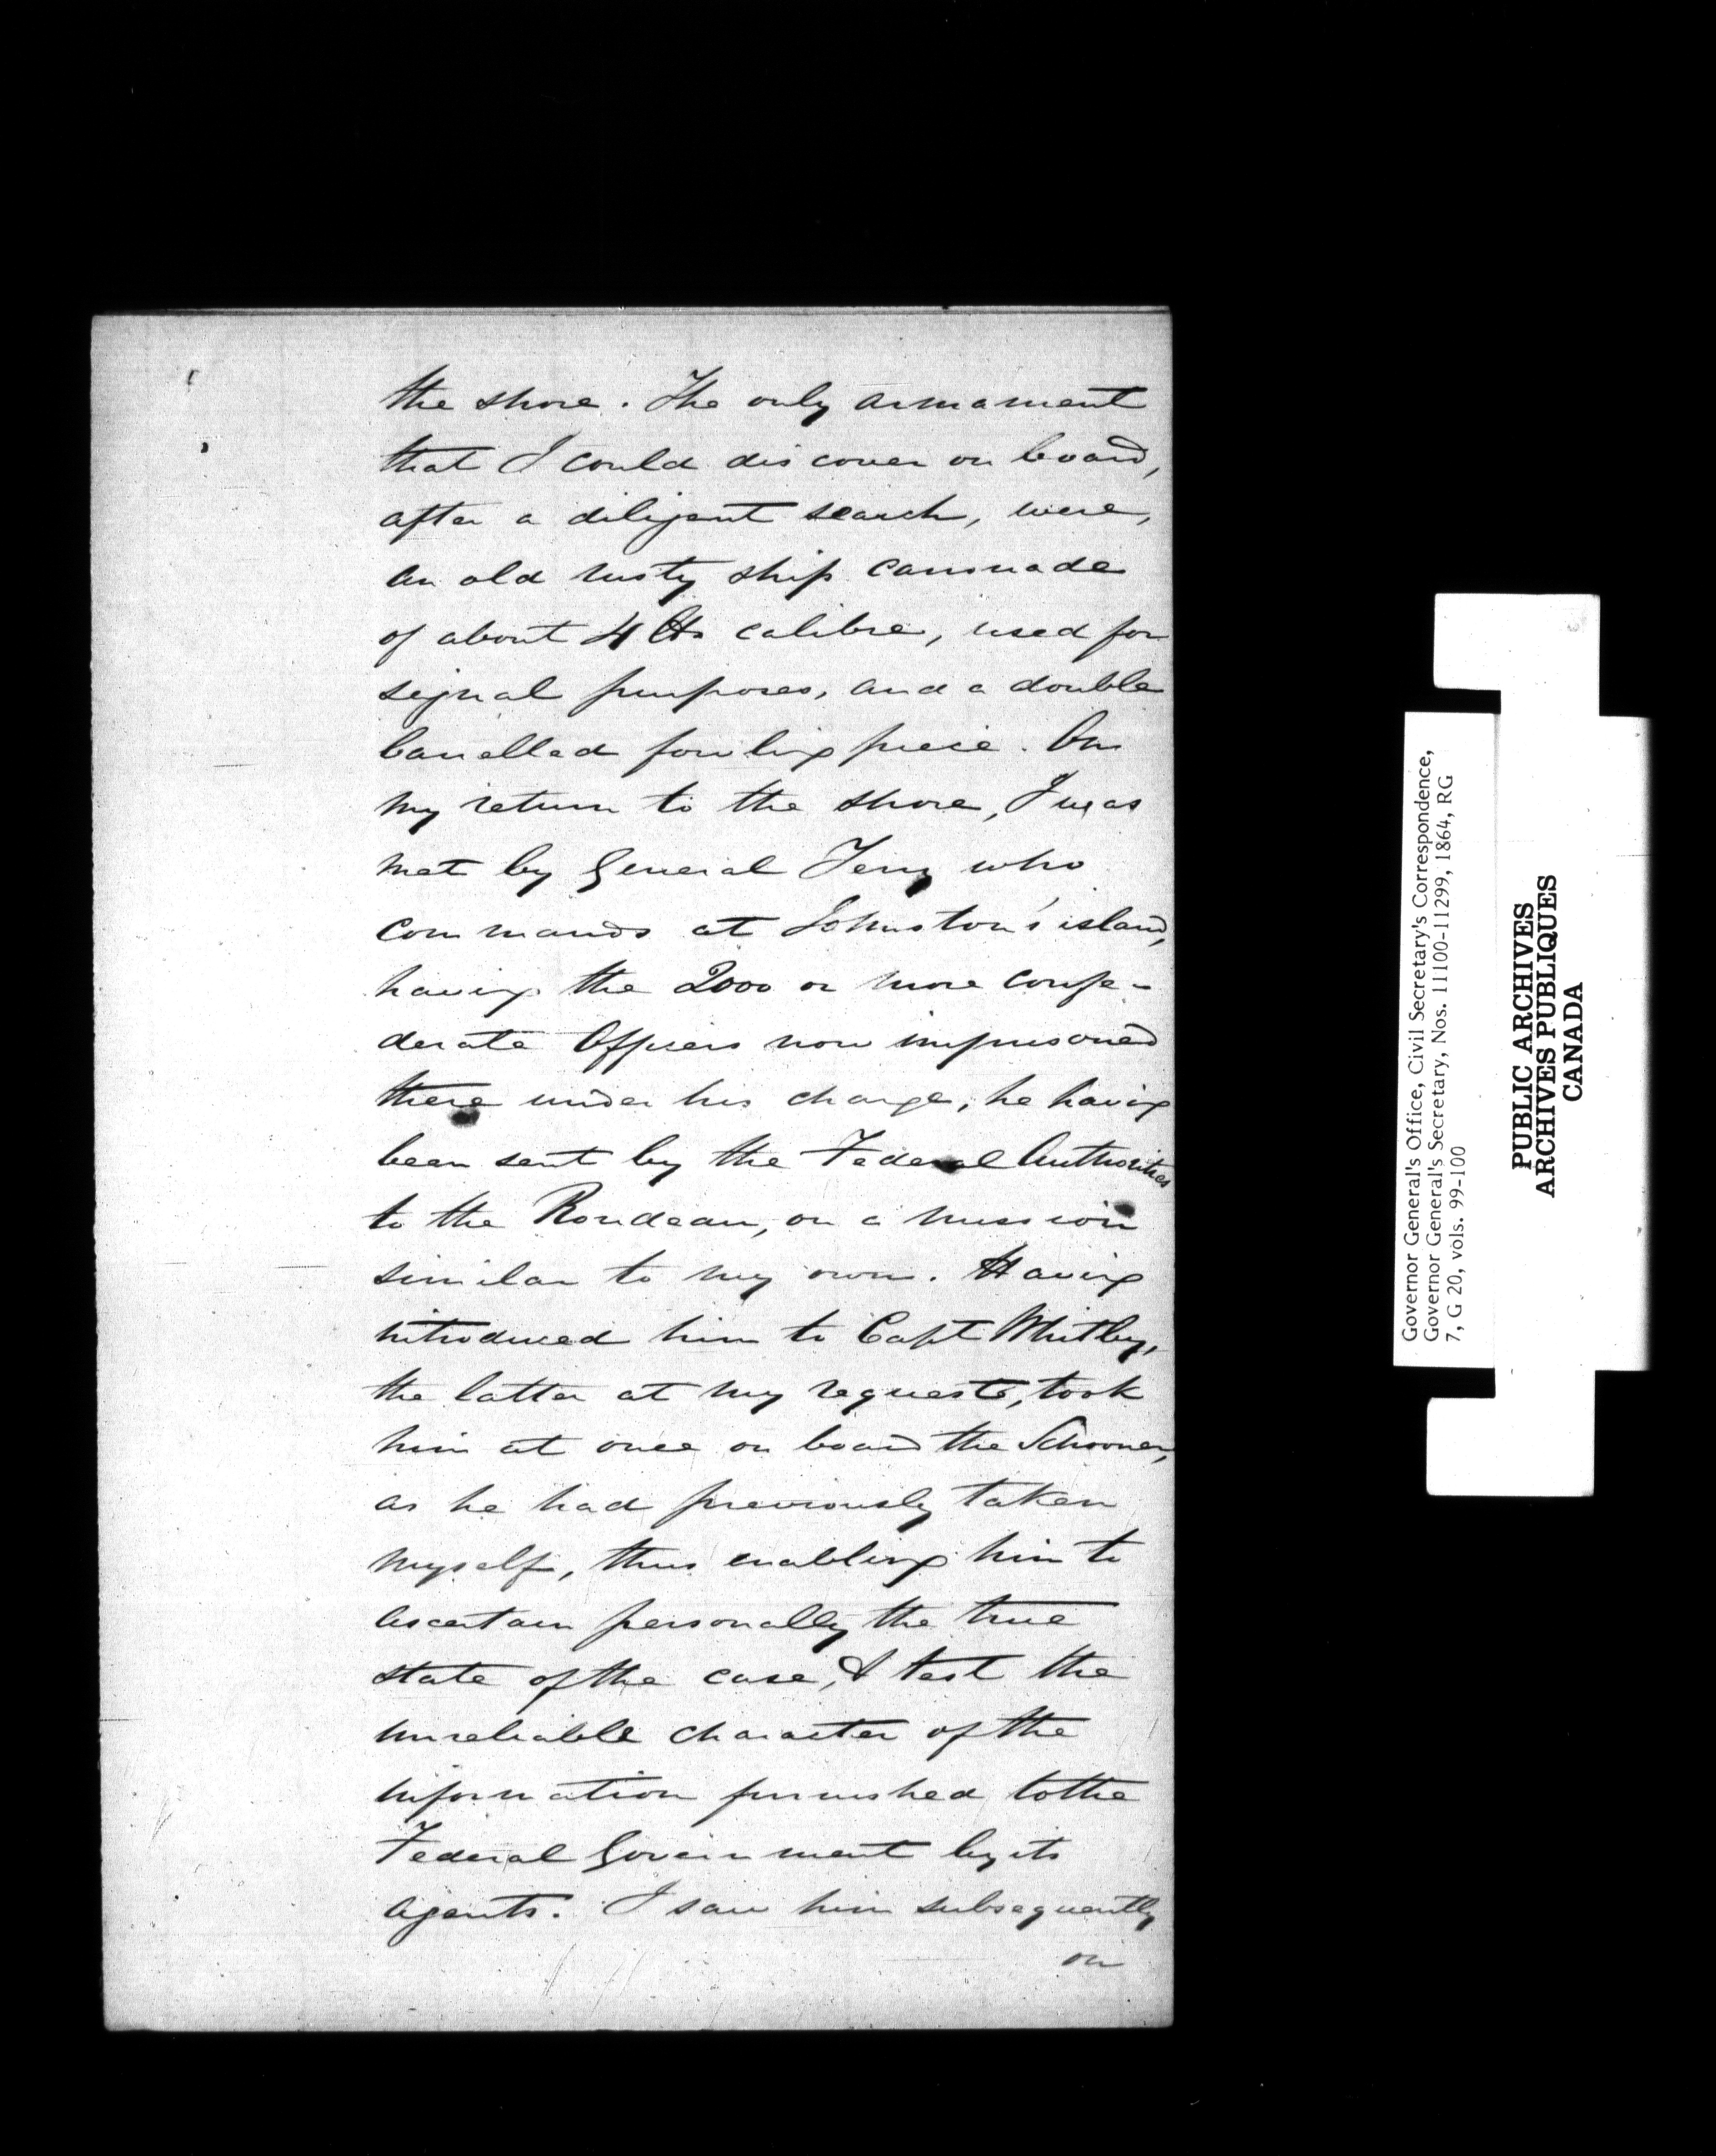 the shore. The only armament
that I could discover on board,
after a diligent search, were,
an old rusty ship carronade
of about 4 lbs calibre, used for
signal purposes, and a double
barrelled fowling piece. On
my return to the shore, I was
met by General Terry who
commands at Johnston's island,
having the 2000 or more confe-
derate Officers now imprisoned
there under his charge, he having
been sent by the Federal Authorities
to the Rondeau, on a mission
similar to my own. Having
introduced him to Capt Whitby,
the latter at my request, took
him at once on board the Schooner,
as he had previously taken
myself, thus enabling him to
ascertain personally the true
state of the case, & test the
unreliable character of the
information furnished to the
Federal Government by its
agents. I saw him subsequently
on
Governor General's Office, Civil Secretary's Correspondence,
Governor General's Secretary, Nos. 11100-11299, 1864, RG
7, G 20, vols. 99-100
PUBLIC ARCHIVES
ARCHIVES PUBLIQUES
CANADA